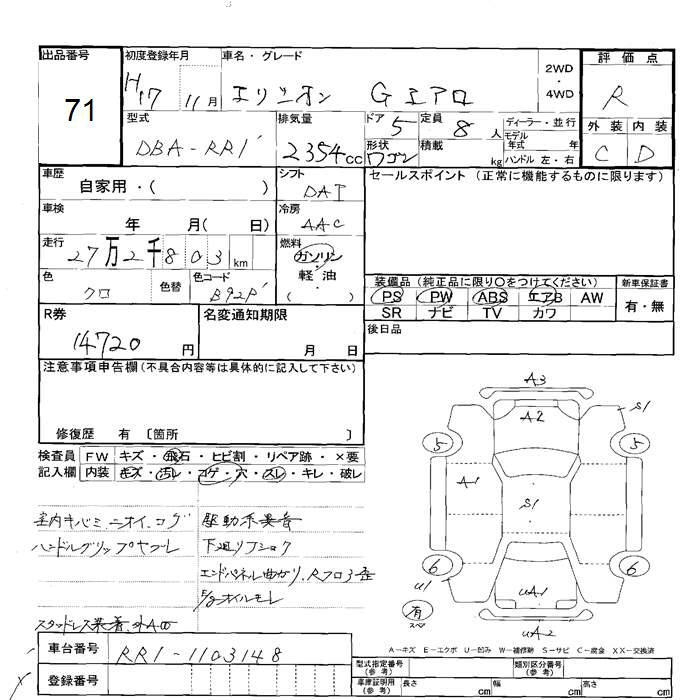 出品番号
71
初度登録年月
H17 11月
車名・グレード
エリシオン Gエアロ
2WD
・
4WD
評価点
R
外装 内装
C D
型式
DBA-RR1
排気量
2354cc
ドア 5
定員 8人
形状 ワゴン
積載 kg
ディーラー・並行
モデル
年式 年
ハンドル 左・右
車歴
自家用・( )
シフト
DAT
セールスポイント (正常に機能するものに限ります)
車検
年 月( 日)
冷房
AAC
走行
27万2千803km
燃料
ガソリン
・
軽油
( )
色
クロ
色替
色コード
B92P
装備品 (純正品に限り○をつけてください)
PS PW ABS エアB AW
SR ナビ TV カワ
新車保証書
有・無
R券
14720円
名変通知期限
月 日
後日品
注意事項申告欄 (不具合内容等は具体的に記入して下さい)
修復歴 有 〔箇所 〕
検査員
記入欄
FW キズ・飛石・ヒビ割・リペア跡・×要
内装 キズ・汚れ・コゲ・穴・スレ・キレ・破レ
室内キバミ、ニオイ、コゲ
ハンドルグリップヤブレ
スタッドレス装着、外AW
駆動系異音
下廻りフショク
エンドパネル曲がり、Rフロア歪
E/gオイルモレ
A3
A2
S1
5
5
A1
S1
6
6
U1
UA1
有
スペ
UA2
A－キズ E－エクボ U－凹み W－補修跡 S－サビ C－腐食 XX－交換済
車台番号
RR1-1103148
登録番号
型式指定番号
(参考)
類別区分番号
(参考)
車庫証明用
(参考)
長さ cm
幅 cm
高さ cm